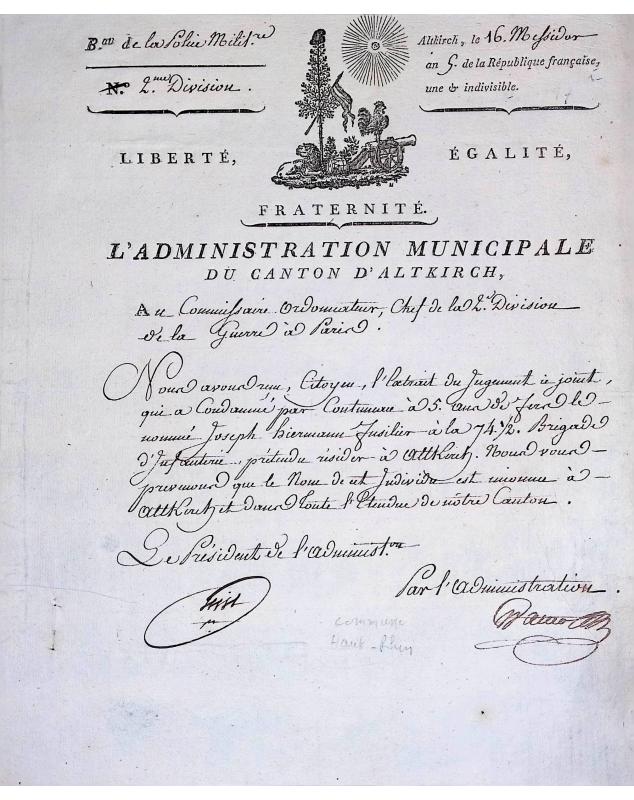 B.au de la Police Milit.re
N.o 2.me Division.
Altkirch, le 16. Messidor
an 5. de la République française,
une & indivisible.
LIBERTÉ, ÉGALITÉ,
FRATERNITÉ.
L'ADMINISTRATION MUNICIPALE
DU CANTON D'ALTKIRCH,
Au Commissaire Ordonnateur, Chef de la 2.e Division
de la Guerre à Paris.
Nous avons reçu, Citoyen, l'Extrait du Jugement ci joint,
qui a Condamné par Contumace à 5. ans de fers le
nommé Joseph hiermann fusilier à la 74. ½. Brigade
d'Infanterie, prétendu résider à Altkirch. Nous vous
prevenons que le Nom de cet Individu est inconnu à
Altkirch et dans toute l'Etendue de nôtre Canton.
Le Président de l'administ.on
Par l'Administration.
commune
Haut-Rhin